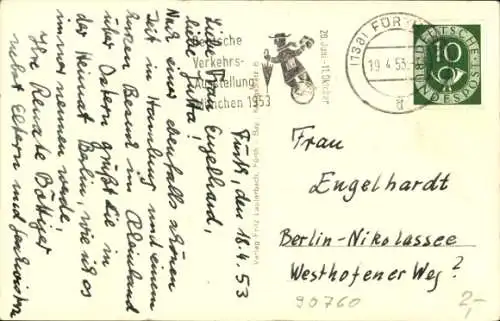 Fürth, den 18.4.53
Liebe Frau Engelhard,
liebe Jutta!
Nach einer ebenfalls schönen
Zeit in Hamburg und einem
kurzen Besuch im Rheinland
über Ostern grüßt Sie in
der Heimat Berlin, wie ich es
immer nennen werde,
Ihre Renate Böttiger
nebst Eltern und Geschwister
Verlag Fritz Lauterbach, Fürth - Bay.
sche
Verkehrs-
Ausstellung
München 1953
20. Juni - 11. Oktober
(13a) FÜR
19.4.53
a
DEUTSCHE
BUNDESPOST
10
Frau
Engelhardt
Berlin-Nikolassee
Westhofener Weg ?
90760
2,-